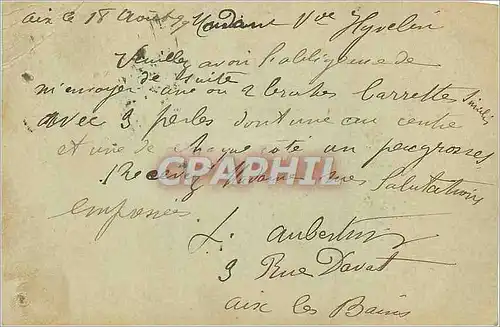 aix le 18 Aout 99 Madame Vve Hyvelin
Veuillez avoir l'obligence de
m'envoyer de suite une ou 2 broches barrettes
avec 3 perles dont une au centre
et une de chaque coté un peu grosses
CPARHIL
Recevez Madame mes Salutations
empressées
J. Aubertin
3 Rue Davat
aix les Bains